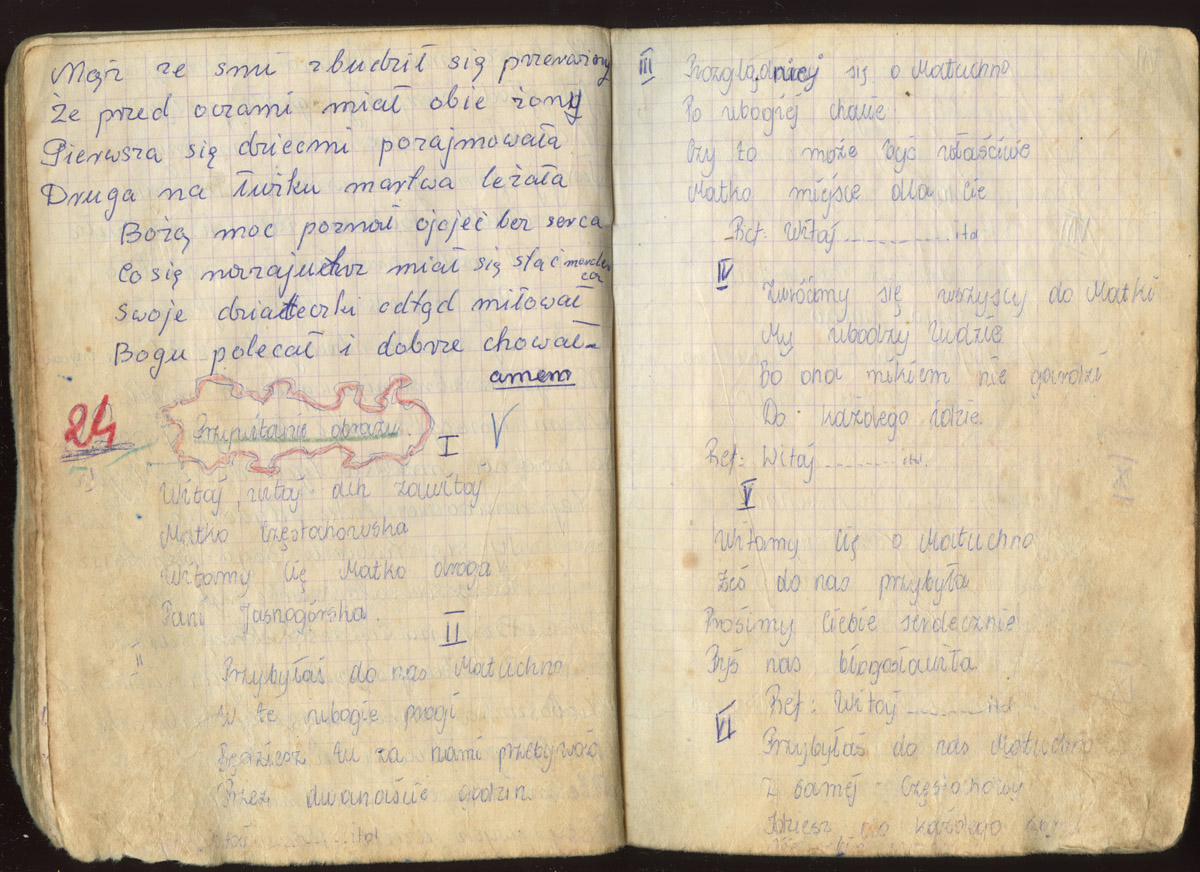 Mąż ze snu zbudził się przerażony
Że przed oczami miał obie żony
Pierwsza się dziećmi pozajmowała
Druga na łużku martwa leżała
Bożą moc poznał ojcjeć bez serca
Co się nazajuchtrz miał się stać morder
ca
Swoje dziateczki odtąd miłował
Bogu polecał i dobrze chował
amem
24
Przywitanie obrazu.
I
Witaj, witaj ach zawitaj
Matko Częstochowska
Witamy Cię Matko droga
Pani Jasnogórska.
II
Przybyłaś do nas Matuchno
W te ubogie progi
Będziesz tu za nami przebywała
Przez dwanaście godzin.
itd
III
Rozglądnicj się o Matuchno
Po ubogiéj chacie
Czy to może być właściwe
Matko miejsce dla Cie
Ref: Witaj ............ itd
IV
Zwróćmy się wszyscy do Matki
My ubodzy ludzie
Bo ona nikiem nie gardzi
Do każdego idzie.
Ref: Witaj ........ itd.
V
Witamy Cię o Matuchno
Żeś do nas przybyła
Prosimy Ciebie serdecznie
Byś nas błogosławiła.
Ref: Witaj ........ itd
VI
Przybyłaś do nas Matuchno
Z saméj Częstochowy
Idziesz do każdego